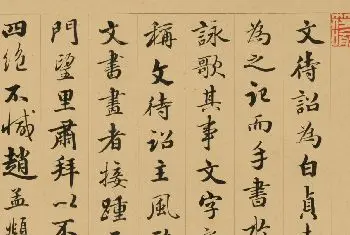 文待詔為白貞
為之記而手書於
詠歌其事文字
稱文待詔主風
文書畫者接踵
門望里肅拜以不
四絕不憾趙孟頫